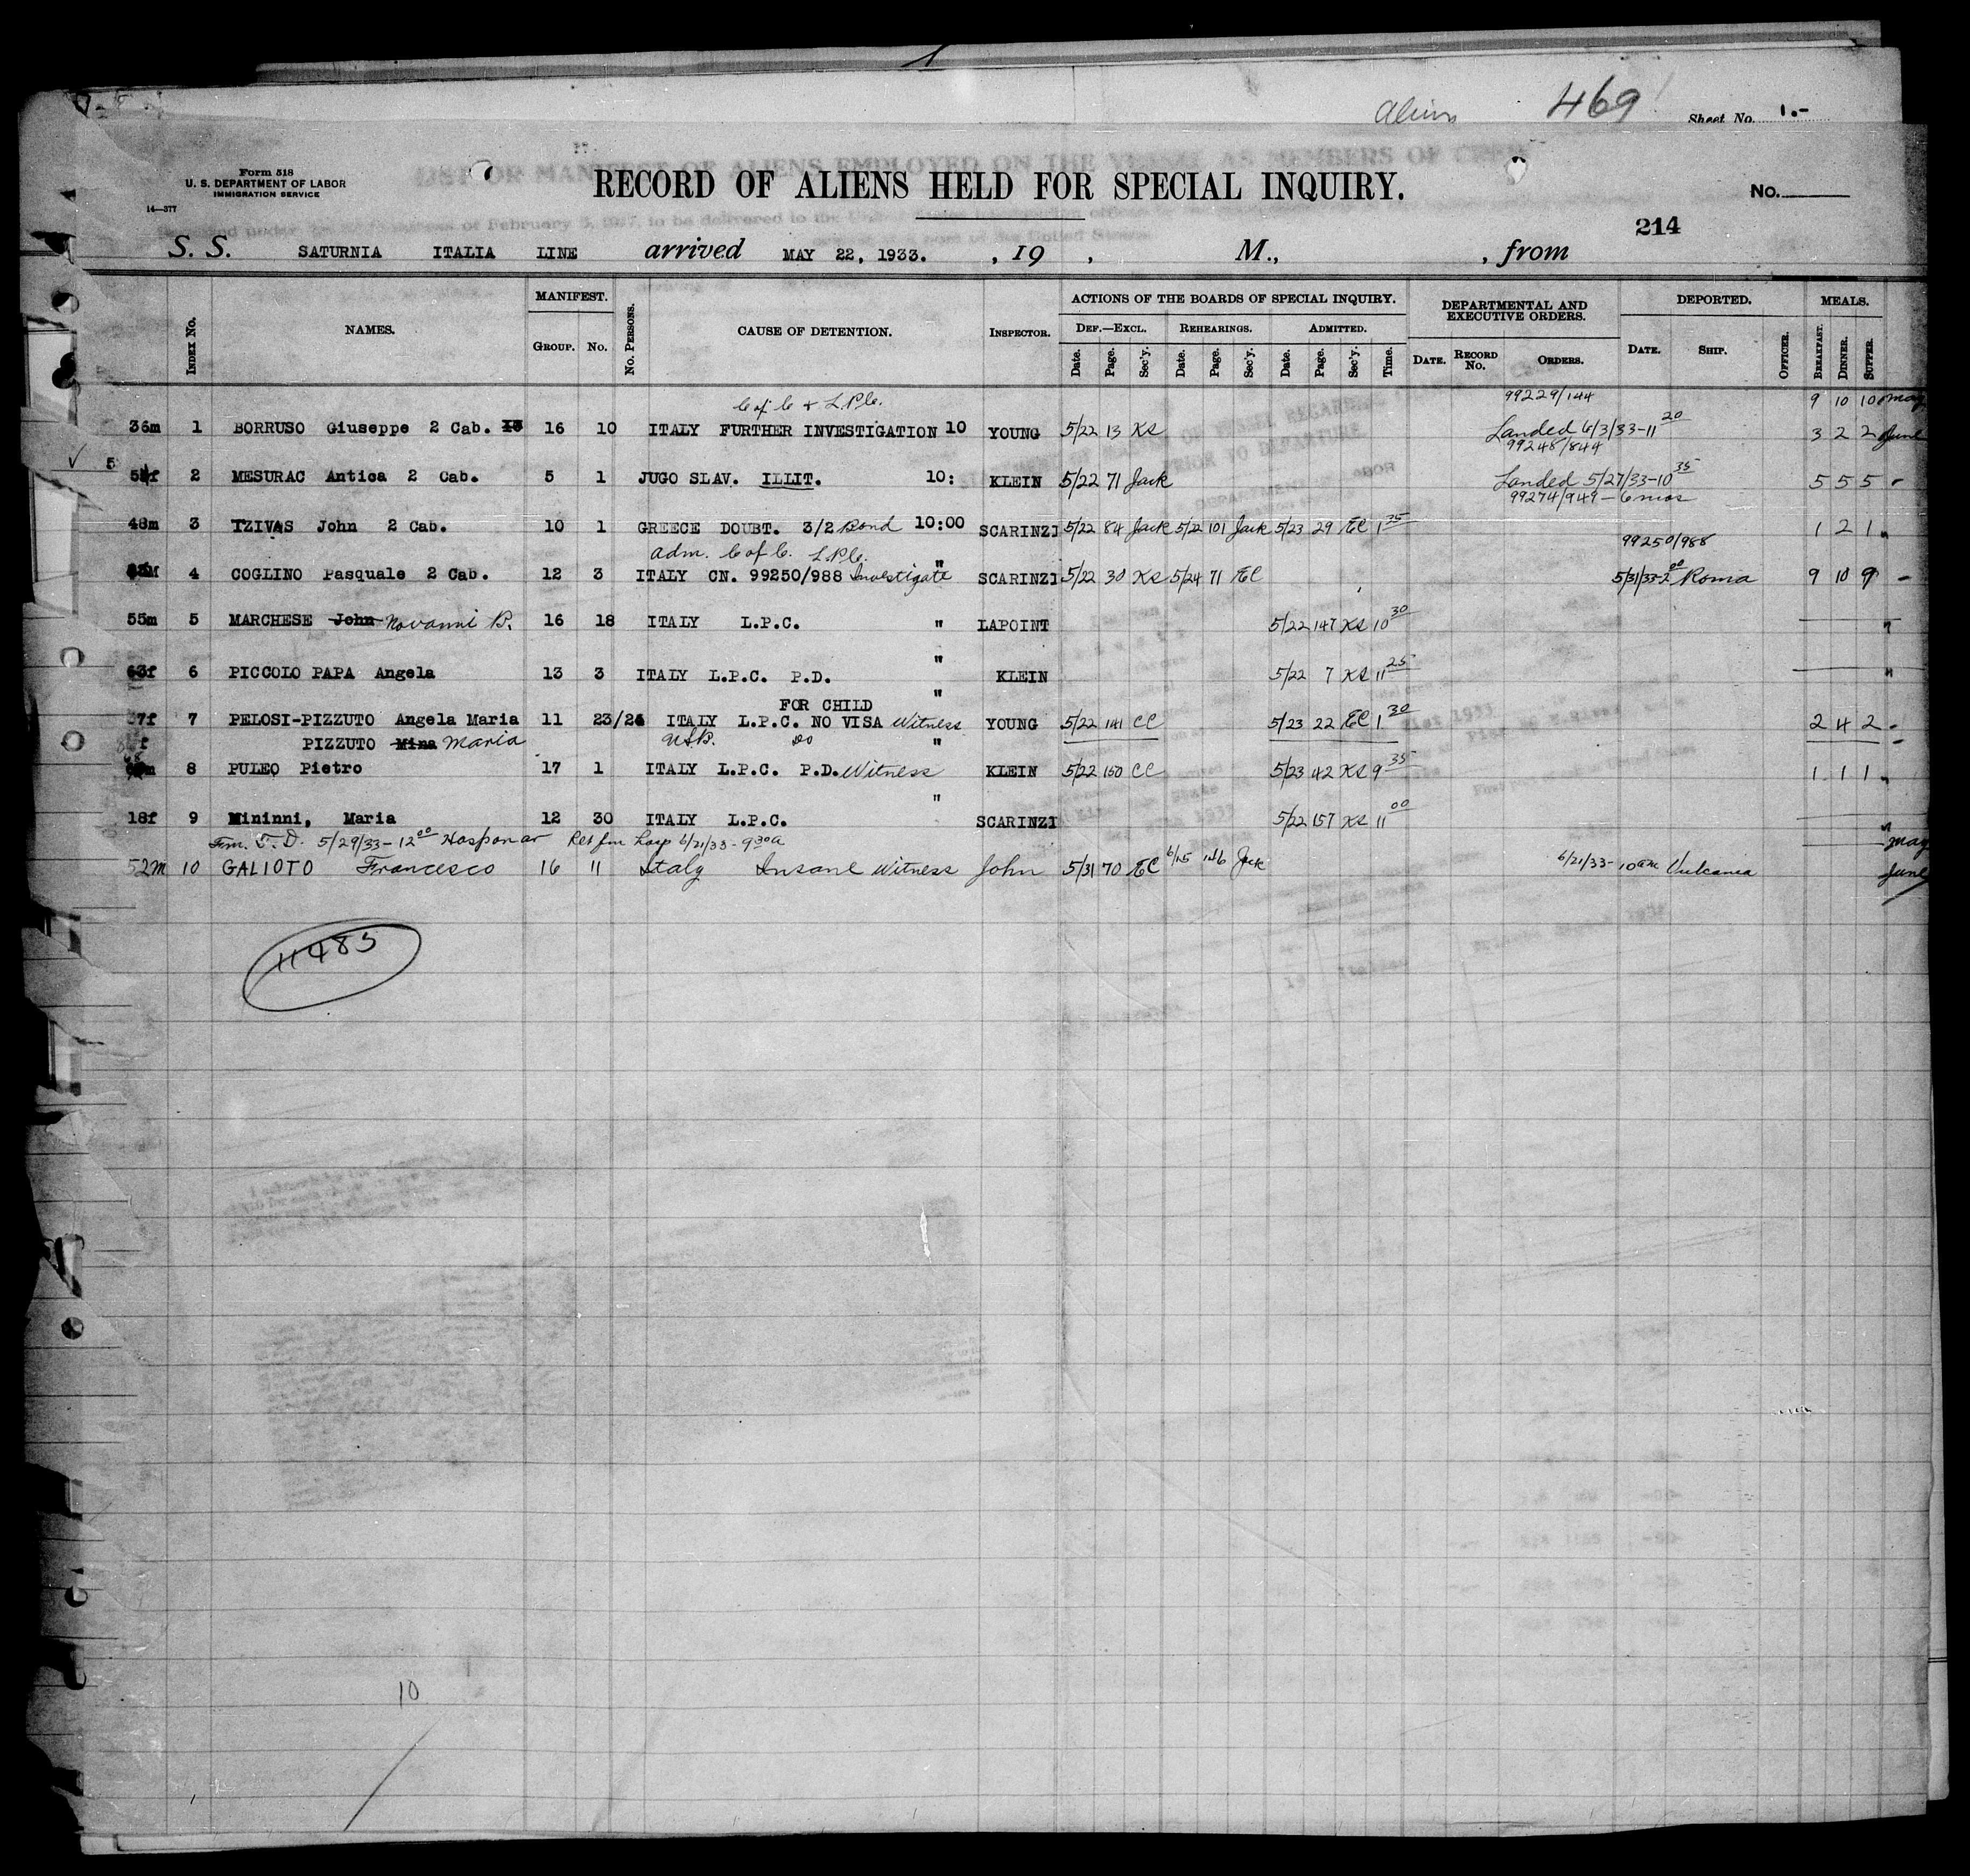 Aliens 469 Sheet No. 1.-
Form 518
U. S. DEPARTMENT OF LABOR
IMMIGRATION SERVICE
14—377
LIST OR MANIFEST OF ALIENS EMPLOYED ON THE VESSEL AS MEMBERS OF CREW
RECORD OF ALIENS HELD FOR SPECIAL INQUIRY.
No.
214
S. S. SATURNIA ITALIA LINE arrived MAY 22, 1933. , 19 , M., , from
INDEX No. NAMES. MANIFEST. GROUP. No. No. PERSONS. CAUSE OF DETENTION. INSPECTOR. ACTIONS OF THE BOARDS OF SPECIAL INQUIRY. DEPARTMENTAL AND EXECUTIVE ORDERS. DEPORTED. MEALS.
DEF.—EXCL. REHEARINGS. ADMITTED.
Date. Page. Sec'y. Date. Page. Sec'y. Date. Page. Sec'y. Time. DATE. RECORD No. ORDERS. DATE. SHIP. OFFICER. BREAKFAST. DINNER. SUPPER.
C of C & L.P.C. 99229/144
36m 1 BORRUSO Giuseppe 2 Cab. 16 10 ITALY FURTHER INVESTIGATION 10 YOUNG 5/22 13 KS Landed 6/3/33-11 20 9 10 10 May
99248/844 3 2 2 June
f 2 MESURAC Antica 2 Cab. 5 1 JUGO SLAV. ILLIT. 10: KLEIN 5/22 71 Jack Landed 5/27/33-10 35 5 5 5 "
99274/949 - 6 mos
48m 3 TZIVAS John 2 Cab. 10 1 GREECE DOUBT. 3/2 Bond 10:00 SCARINZI 5/22 84 Jack 5/22 101 Jack 5/23 29 EC 1 35 1 2 1 "
Adm. C of C. L.P.C. 99250/988
4 COGLINO Pasquale 2 Cab. 12 3 ITALY CN. 99250/988 Investigate " SCARINZI 5/22 30 KS 5/24 71 EC 5/31/33-2 00 Roma 9 10 9 "
55m 5 MARCHESE John Novanni B. 16 18 ITALY L.P.C. " LAPOINT 5/22 147 KS 10 30 "
63f 6 PICCOLO PAPA Angela 13 3 ITALY L.P.C. P.D. " KLEIN 5/22 7 KS 11 25 "
FOR CHILD "
37f 7 PELOSI-PIZZUTO Angela Maria 11 23/24 ITALY L.P.C. NO VISA Witness YOUNG 5/22 141 CC 5/23 22 EC 1 30 2 4 2 "
f PIZZUTO Mina Maria do "
m 8 PULEO Pietro 17 1 ITALY L.P.C. P.D. Witness KLEIN 5/22 150 CC 5/23 42 KS 9 35 1 1 1 "
18f 9 Mininni, Maria 12 30 ITALY L.P.C. " SCARINZI 5/22 157 KS 11 00 "
Frm. T. D. 5/29/33-12 00 Ret fm Hosp 6/21/33-9 30a May
52m 10 GALIOTO Francesco 16 11 Italy Insane Witness John 5/31 70 EC 6/15 146 Jack 6/21/33-10am Vulcania June
11483
10